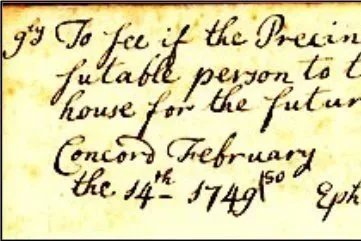 9ly To see if the Precin
sutable person to t
house for the futur
Concord February
the 14th 1749/50 Eph